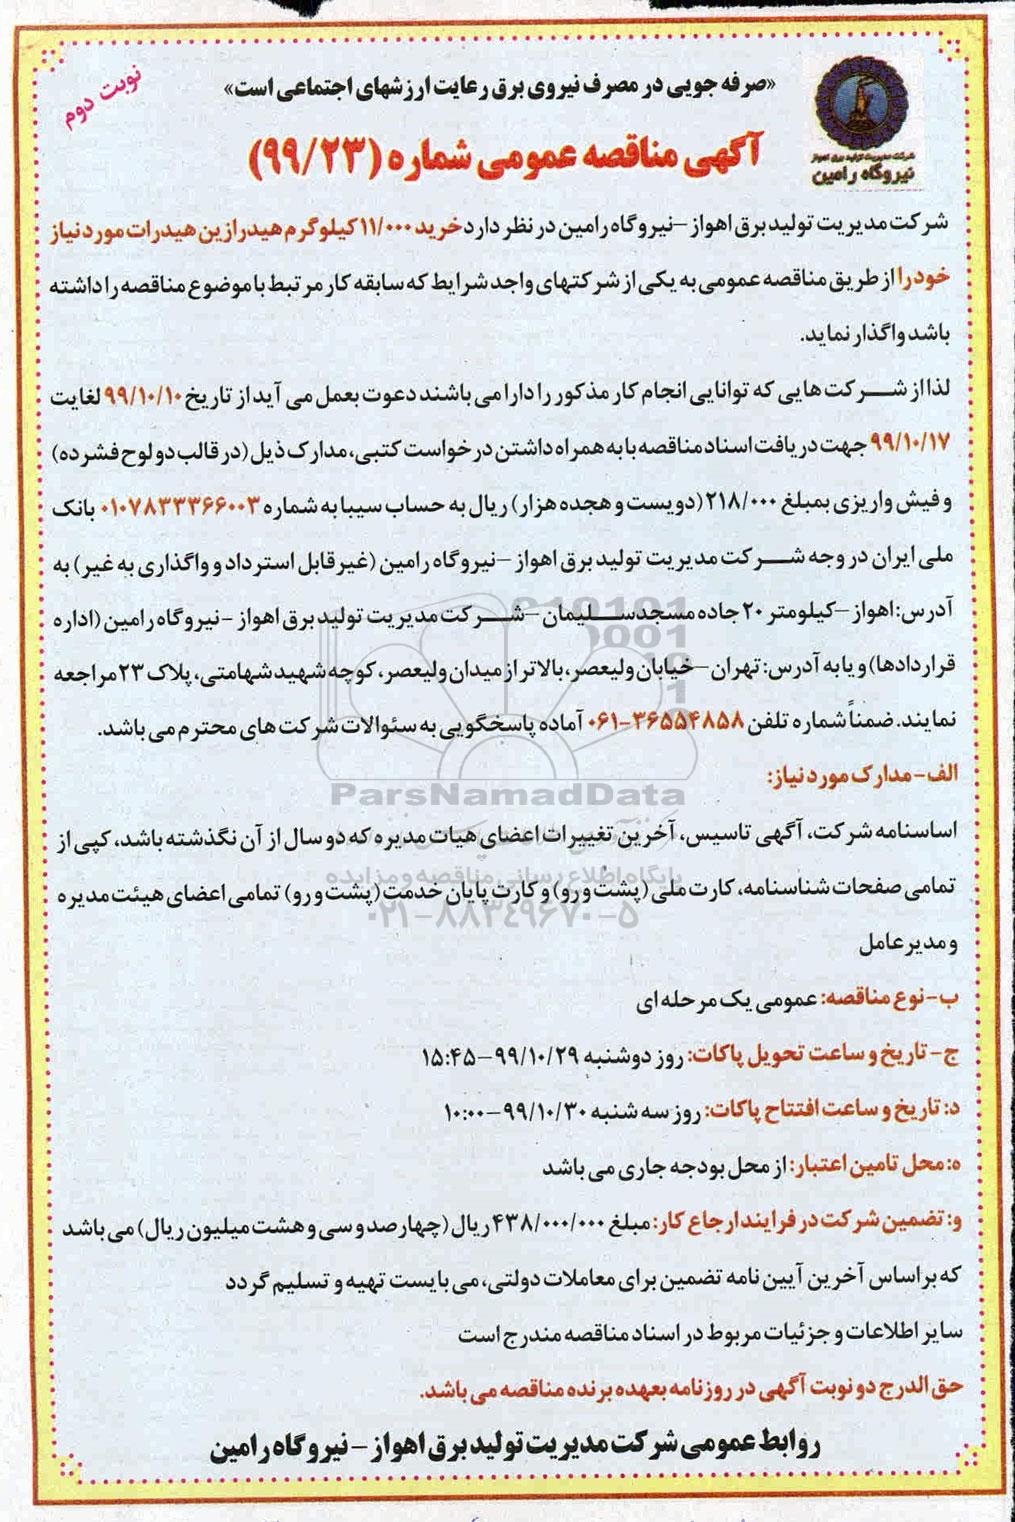 نوبت دوم
«صرفه جویی در مصرف نیروی برق رعایت ارزشهای اجتماعی است»
آگهی مناقصه عمومی شماره (۹۹/۲۳)
شرکت مدیریت تولید برق اهواز
نیروگاه رامین
شرکت مدیریت تولید برق اهواز -نیروگاه رامین در نظر دارد خرید ۱۱/۰۰۰ کیلوگرم هیدرازین هیدرات مورد نیاز
خود را از طریق مناقصه عمومی به یکی از شرکتهای واجد شرایط که سابقه کار مرتبط با موضوع مناقصه را داشته
باشد واگذار نماید.
لذا از شرکت هایی که توانایی انجام کار مذکور را دارا می باشند دعوت بعمل می آید از تاریخ ۹۹/۱۰/۱۰ لغایت
۹۹/۱۰/۱۷ جهت دریافت اسناد مناقصه با به همراه داشتن درخواست کتبی، مدارک ذیل (در قالب دو لوح فشرده)
و فیش واریزی بمبلغ ۲۱۸/۰۰۰ (دویست و هجده هزار) ریال به حساب سیبا به شماره ۰۱۰۷۸۳۳۳۶۶۰۰۳ بانک
ملی ایران در وجه شرکت مدیریت تولید برق اهواز -نیروگاه رامین (غیرقابل استرداد و واگذاری به غیر) به
آدرس: اهواز -کیلومتر ۲۰ جاده مسجدسلیمان -شرکت مدیریت تولید برق اهواز -نیروگاه رامین (اداره
قراردادها) و یا به آدرس: تهران -خیابان ولیعصر، بالاتر از میدان ولیعصر، کوچه شهید شهامتی، پلاک ۲۳ مراجعه
نمایند. ضمناً شماره تلفن ۳۶۵۵۴۸۵۸-۰۶۱ آماده پاسخگویی به سئوالات شرکت های محترم می باشد.
الف- مدارک مورد نیاز:
ParsNamadData
اساسنامه شرکت، آگهی تاسیس، آخرین تغییرات اعضای هیات مدیره که دو سال از آن نگذشته باشد، کپی از
پایگاه اطلاع رسانی مناقصه و مزایده
تمامی صفحات شناسنامه، کارت ملی (پشت و رو) و کارت پایان خدمت (پشت و رو) تمامی اعضای هیئت مدیره
۰۲۱-۸۸۳۴۹۶۷۰-۵
و مدیرعامل
ب- نوع مناقصه: عمومی یک مرحله ای
ج- تاریخ و ساعت تحویل پاکات: روز دوشنبه ۹۹/۱۰/۲۹-۱۵:۴۵
د: تاریخ و ساعت افتتاح پاکات: روز سه شنبه ۹۹/۱۰/۳۰-۱۰:۰۰
ه: محل تامین اعتبار: از محل بودجه جاری می باشد
و: تضمین شرکت در فرایند ارجاع کار: مبلغ ۴۳۸/۰۰۰/۰۰۰ ریال (چهارصد و سی و هشت میلیون ریال) می باشد
که بر اساس آخرین آیین نامه تضمین برای معاملات دولتی، می بایست تهیه و تسلیم گردد
سایر اطلاعات و جزئیات مربوط در اسناد مناقصه مندرج است
حق الدرج دو نوبت آگهی در روزنامه بعهده برنده مناقصه می باشد.
روابط عمومی شرکت مدیریت تولید برق اهواز - نیروگاه رامین